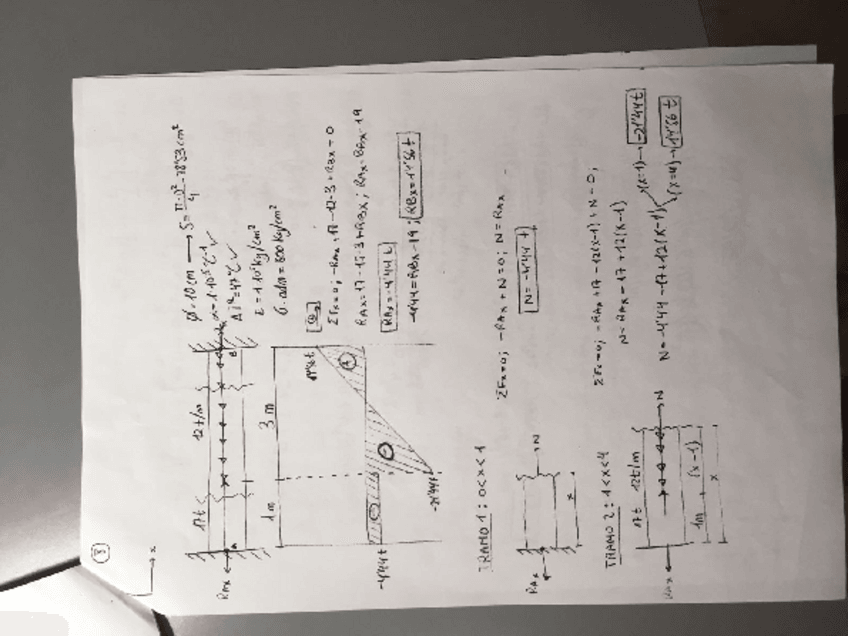 8
x
17t 12t/m
RAx A B
1m 3m
-4'44t -21'44t 14'56t
Ø=10cm → S = π·D²/4 = 78'53cm²
α=1·10⁻⁵ ℃⁻¹ ✓
ΔTª=47℃ ✓
E=1·10⁵ kg/cm²
σ.adm=500kg/cm²
ΣFx=0; -RAx+17-12·3+RBx=0
RAx=17-12·3+RBx; RAx=RBx-19
RAx=-4'44t
-4'44=RBx-19; RBx=14'56t
TRAMO 1: 0<x<1
RAx N
x
ΣFx=0; -RAx+N=0; N=RAx
N=-4'44t
TRAMO 2: 1<x<4
17t 12t/m
RAx N
1m (x-1)
x
ΣFx=0; -RAx+17-12(x-1)+N=0;
N=RAx-17+12(x-1)
N=-4'44-17+12(x-1)
(x=1)→ -21'44t
(x=4)→ 14'56t